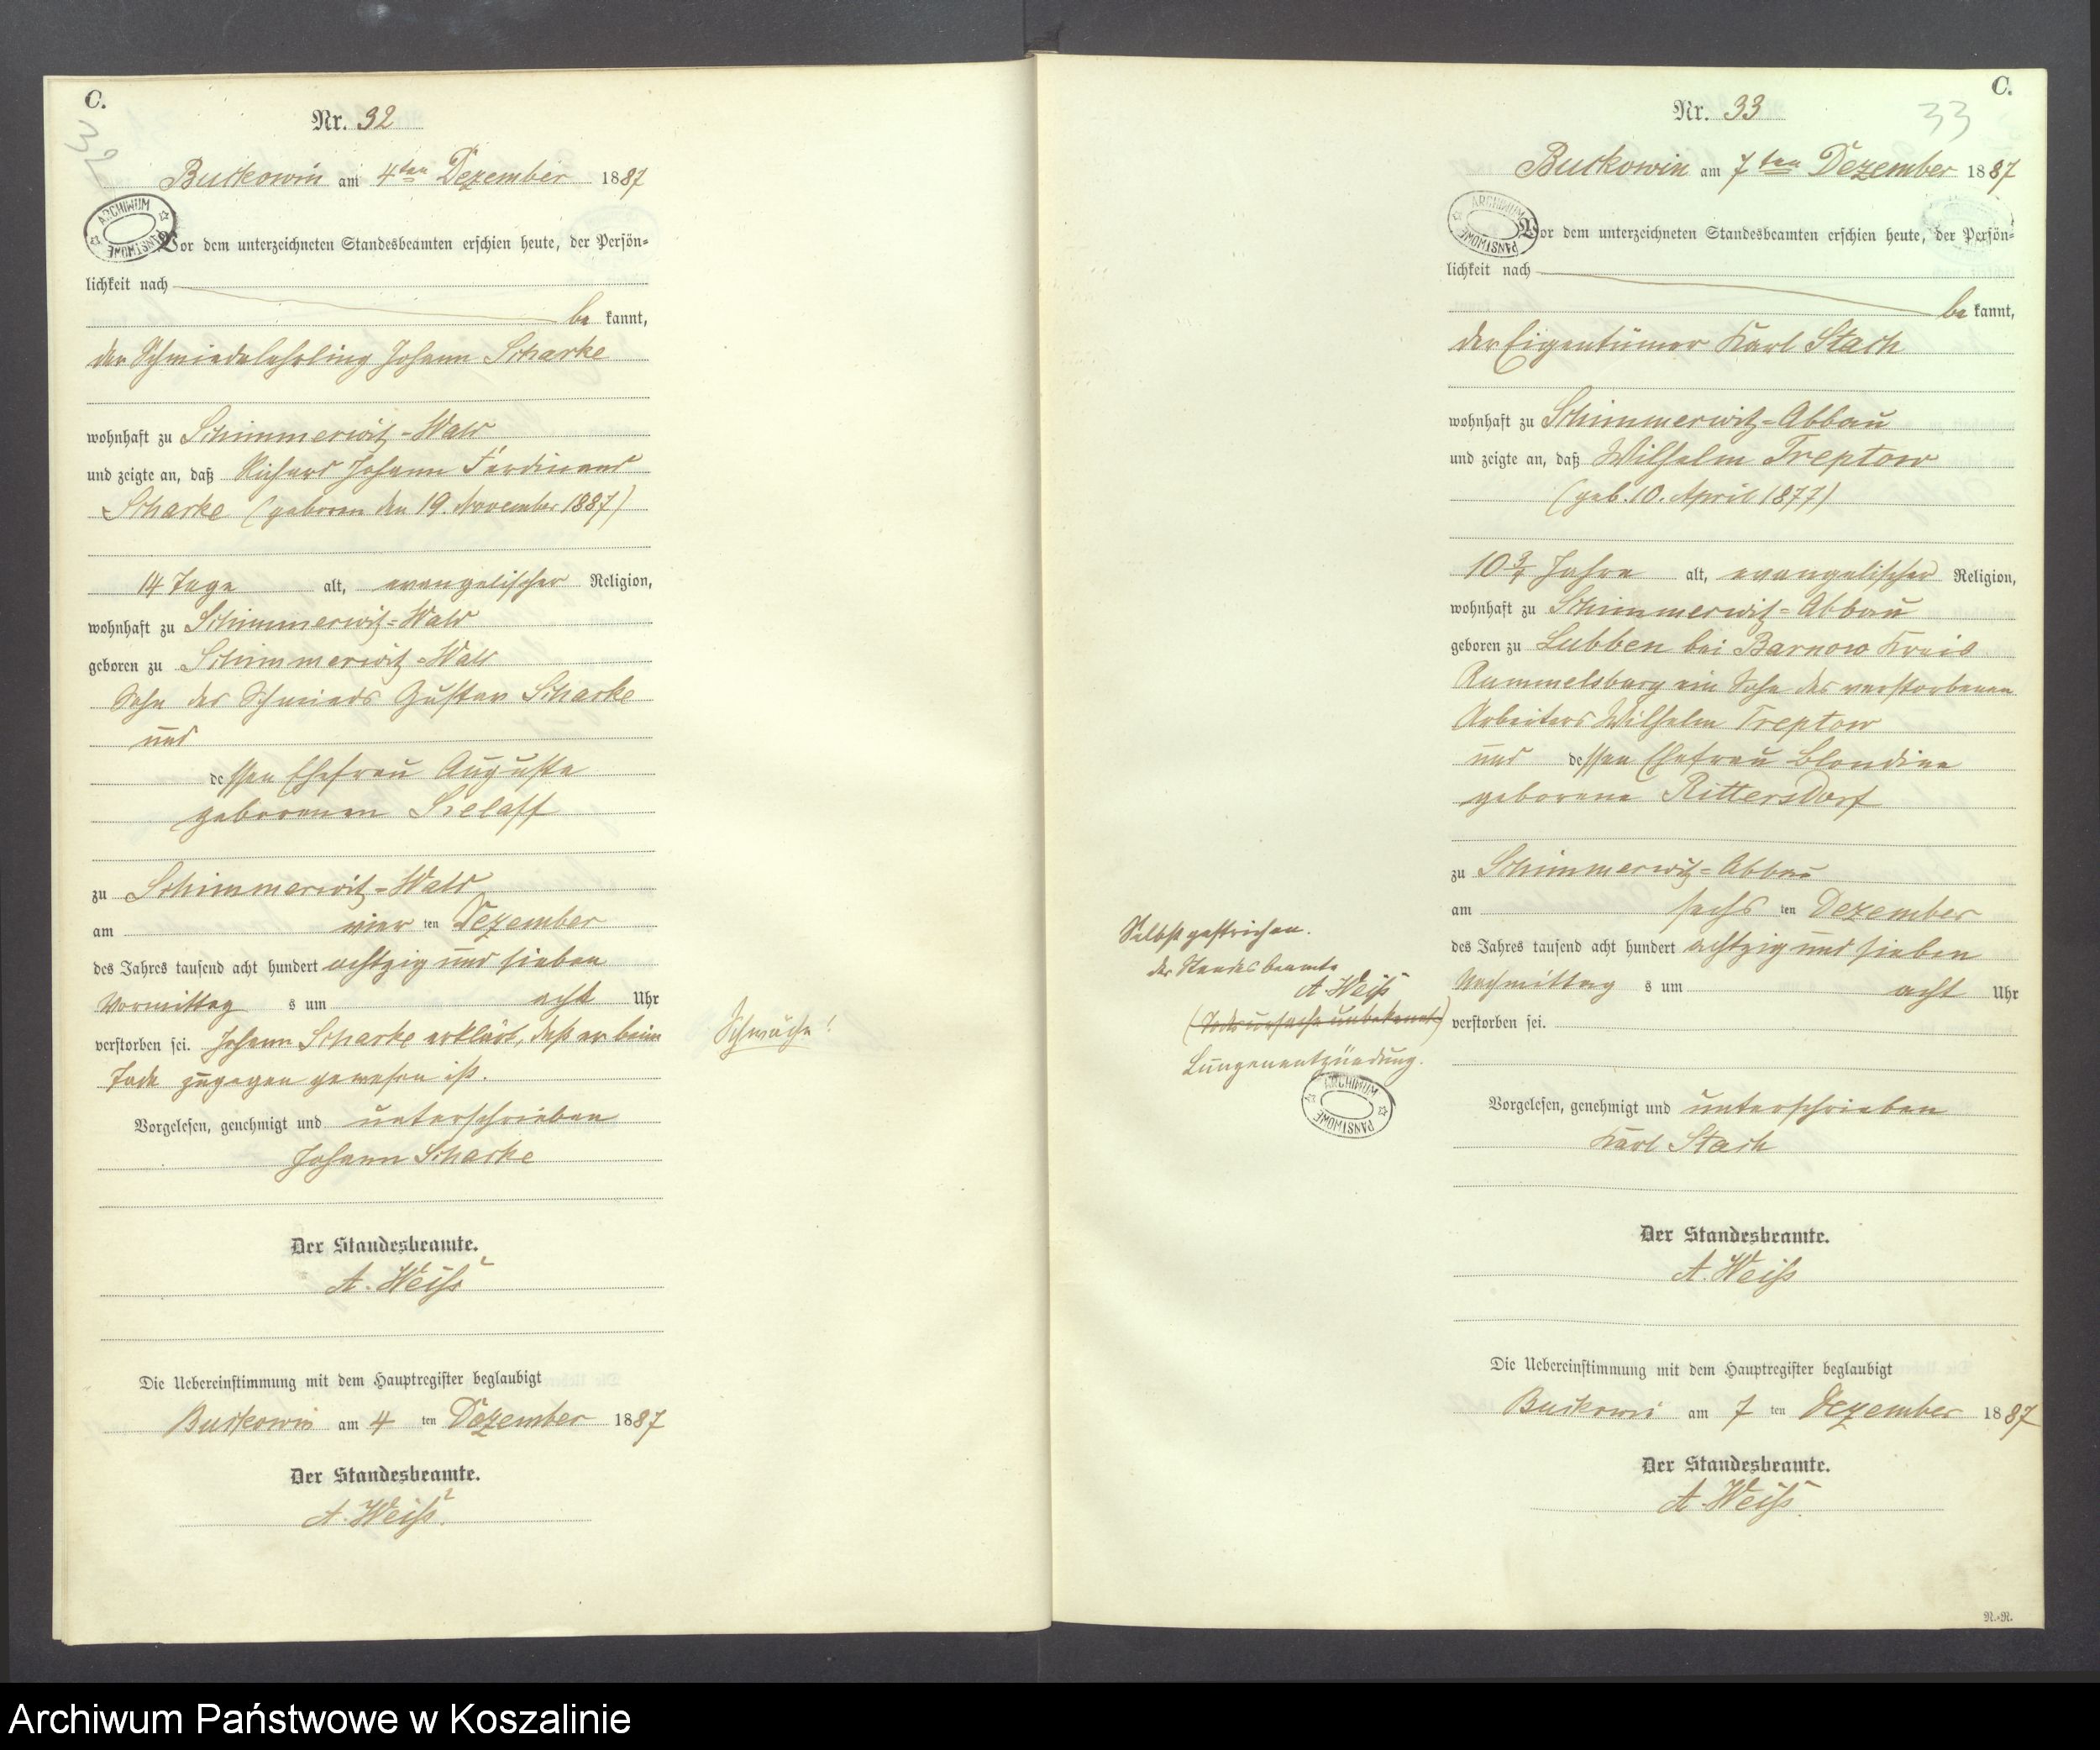 C.
32
Nr. 32
Buckowin am 4ten Dezember 1887
ARCHIWUM PAŃSTWOWE
Vor dem unterzeichneten Standesbeamten erschien heute, der Persön-
lichkeit nach
be kannt,
der Schmiedelehrling Johann Scharke
wohnhaft zu Schimmerwitz-Wald
und zeigte an, daß Richard Johann Ferdinand
Scharke (geboren den 19. November 1887)
14 Tage alt, evangelischer Religion,
wohnhaft zu Schimmerwitz-Wald
geboren zu Schimmerwitz-Wald
Sohn des Schmieds Gustav Scharke
und
dessen Ehefrau Auguste
geborenen Selaff
zu Schimmerwitz-Wald
am vier ten Dezember
des Jahres tausend acht hundert achtzig und sieben
Vormittag s um acht Uhr
verstorben sei. Johann Scharke erklärt, daß er beim
Tode zugegen gewesen ist.
Schwäche!
Vorgelesen, genehmigt und unterschrieben
Johann Scharke
Der Standesbeamte.
A. Weiß
Die Uebereinstimmung mit dem Hauptregister beglaubigt
Buckowin am 4 ten Dezember 1887
Der Standesbeamte.
A. Weiß.
C.
33
Nr. 33
Buckowin am 7ten Dezember 1887
ARCHIWUM PAŃSTWOWE
Vor dem unterzeichneten Standesbeamten erschien heute, der Persön-
lichkeit nach
be kannt,
der Eigentümer Karl Stach
wohnhaft zu Schimmerwitz-Abbau
und zeigte an, daß Wilhelm Treptow
(geb. 10. April 1877)
10 3/4 Jahre alt, evangelischer Religion,
wohnhaft zu Schimmerwitz-Abbau
geboren zu Lubben bei Barnow Kreis
Rummelsburg ein Sohn des verstorbenen
Arbeiters Wilhelm Treptow
und dessen Ehefrau Blondine
geborene Rittersdorf
zu Schimmerwitz-Abbau
am sechs ten Dezember
des Jahres tausend acht hundert achtzig und sieben
Nachmittag s um acht Uhr
verstorben sei.
Selbst gestrichen.
der Standesbeamte
A. Weiß
(Todesursache unbekannt)
Lungenentzündung.
ARCHIWUM PAŃSTWOWE
Vorgelesen, genehmigt und unterschrieben
Karl Stach
Der Standesbeamte.
A. Weiß
Die Uebereinstimmung mit dem Hauptregister beglaubigt
Buckowin am 7 ten Dezember 1887
Der Standesbeamte.
A. Weiß.
N.-R.
Archiwum Państwowe w Koszalinie